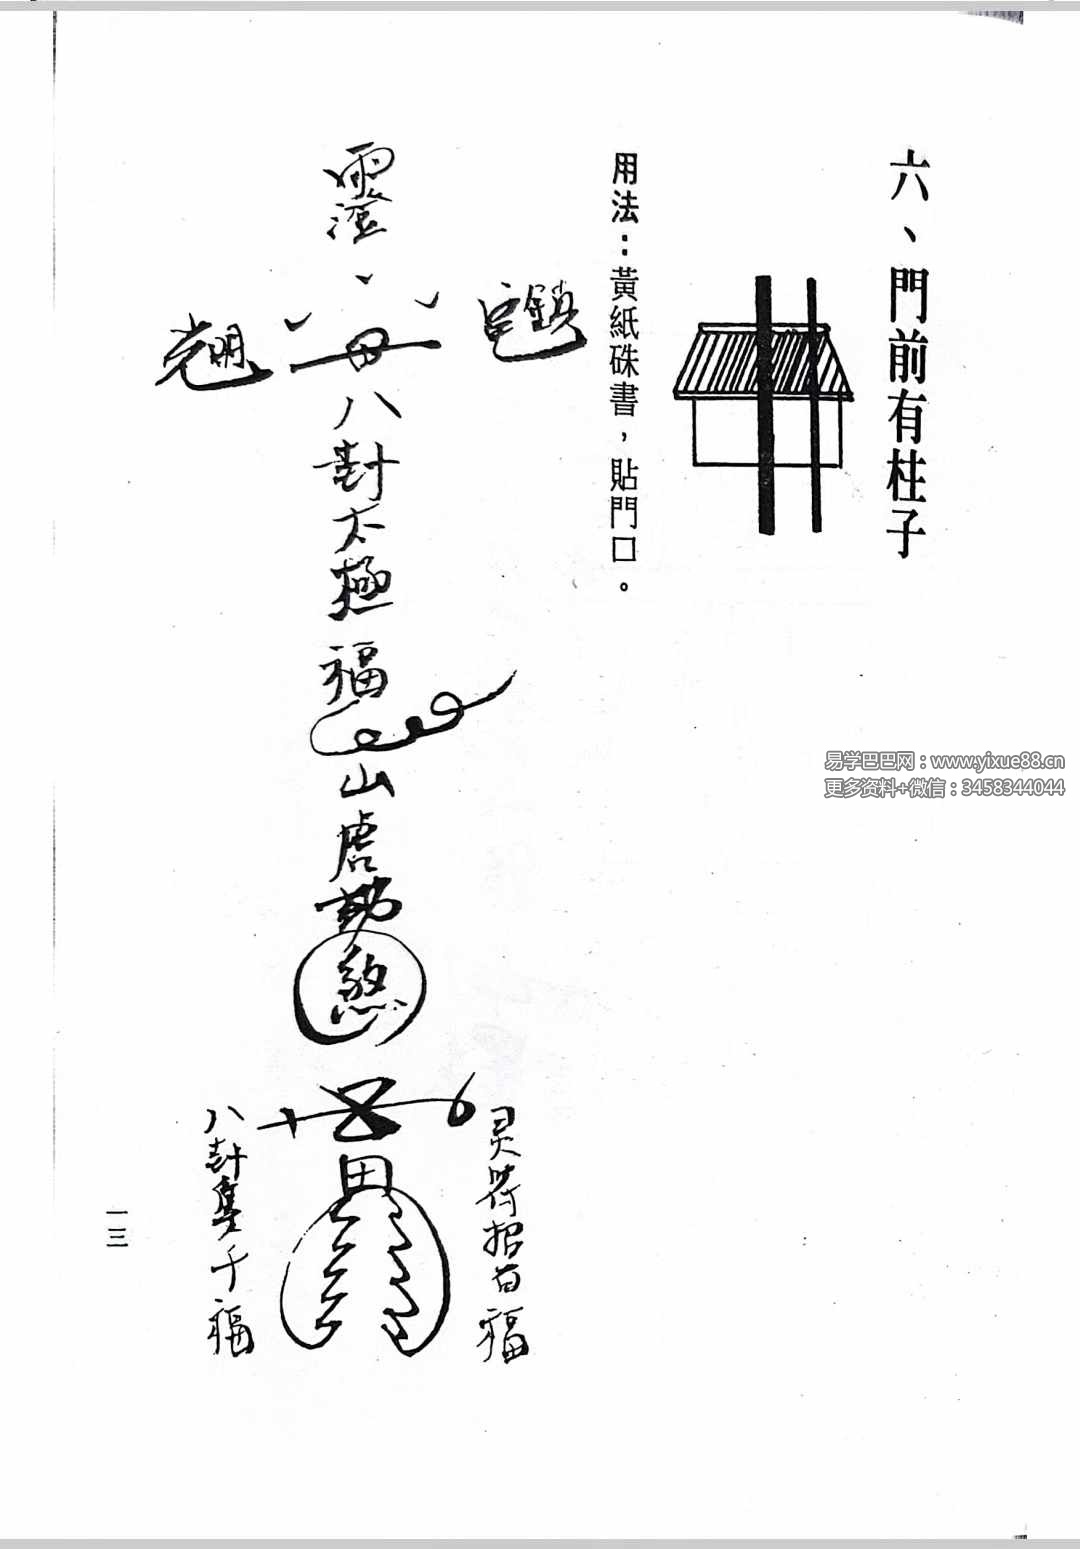 六、門前有柱子
用法：黃紙硃書，貼門口。
鎮宅
光明
八卦太極福
山
煞
田
灵符招百福
八卦集千福
一三
易学巴巴网：www.yixue88.cn
更多资料+微信：3458344044